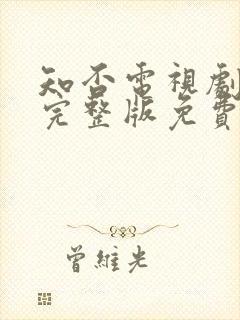 知否電視劇
完整版免費
曾維光